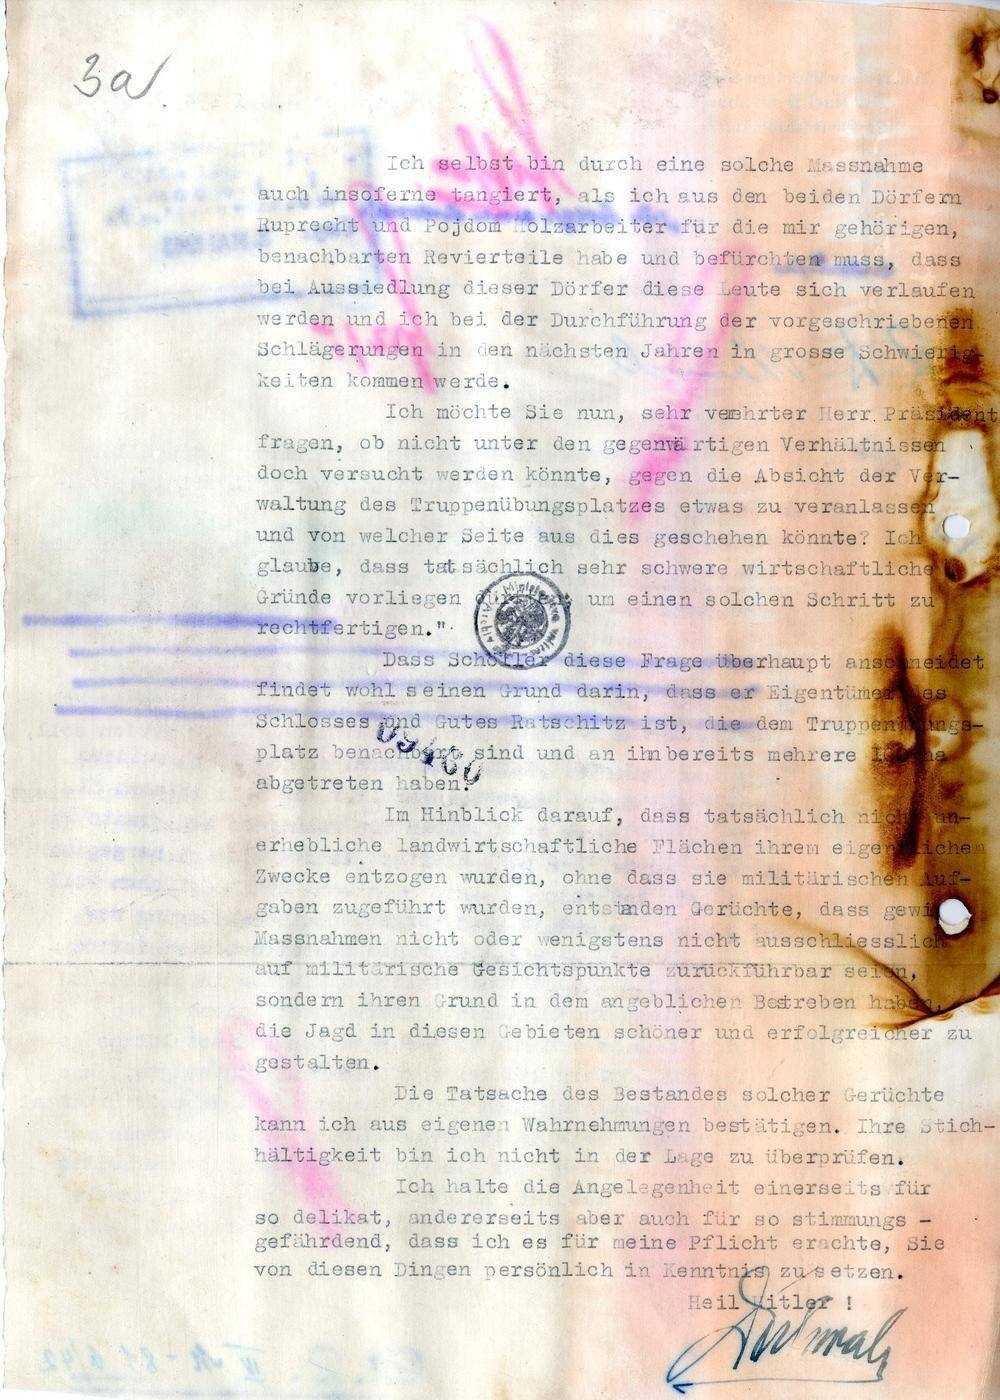 3a
Ich selbst bin durch eine solche Massnahme
auch insoferne tangiert, als ich aus den beiden Dörfern
Ruprecht und Pojdom Holzarbeiter für die mir gehörigen,
benachbarten Revierteile habe und befürchten muss, dass
bei Aussiedlung dieser Dörfer diese Leute sich verlaufen
werden und ich bei der Durchführung der vorgeschriebenen
Schlägerungen in den nächsten Jahren in grosse Schwierig-
keiten kommen werde.
Ich möchte Sie nun, sehr verehrter Herr Präsident
fragen, ob nicht unter den gegenwärtigen Verhältnissen
doch versucht werden könnte, gegen die Absicht der Ver-
waltung des Truppenübungsplatzes etwas zu veranlassen
und von welcher Seite aus dies geschehen könnte? Ich
glaube, dass tatsächlich sehr schwere wirtschaftliche
Gründe vorliegen um einen solchen Schritt zu
rechtfertigen."
Dass Schöller diese Frage überhaupt anschneidet
findet wohl seinen Grund darin, dass er Eigentümer des
Schlosses und Gutes Ratschitz ist, die dem Truppenübungs-
platz benachbart sind und an ihn bereits mehrere ha
abgetreten haben.
09460
Im Hinblick darauf, dass tatsächlich nicht un-
erhebliche landwirtschaftliche Flächen ihrem eigentlichen
Zwecke entzogen wurden, ohne dass sie militärischen Auf-
gaben zugeführt wurden, entstanden Gerüchte, dass gewi
Massnahmen nicht oder wenigstens nicht ausschliesslich
auf militärische Gesichtspunkte zurückführbar seien,
sondern ihren Grund in dem angeblichen Bestreben haben,
die Jagd in diesen Gebieten schöner und erfolgreicher zu
gestalten.
Die Tatsache des Bestandes solcher Gerüchte
kann ich aus eigenen Wahrnehmungen bestätigen. Ihre Stich-
hältigkeit bin ich nicht in der Lage zu überprüfen.
Ich halte die Angelegenheit einerseits für
so delikat, andererseits aber auch für so stimmungs -
gefährdend, dass ich es für meine Pflicht erachte, Sie
von diesen Dingen persönlich in Kenntnis zu setzen.
Heil Hitler !